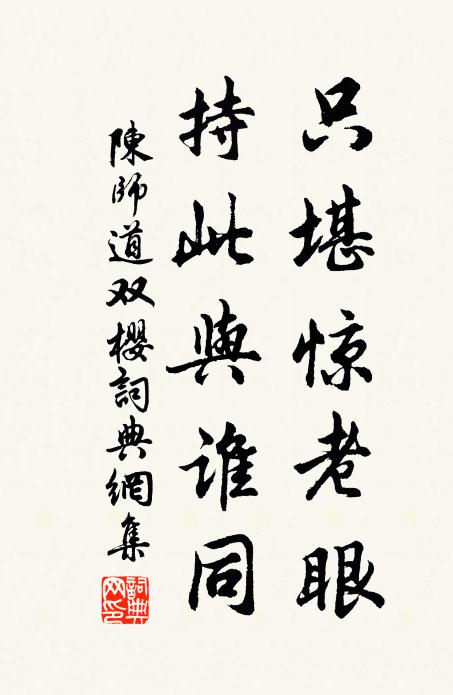 只堪惊老眼
持此與谁同
陳師道双櫻詞典網集
詞典网印